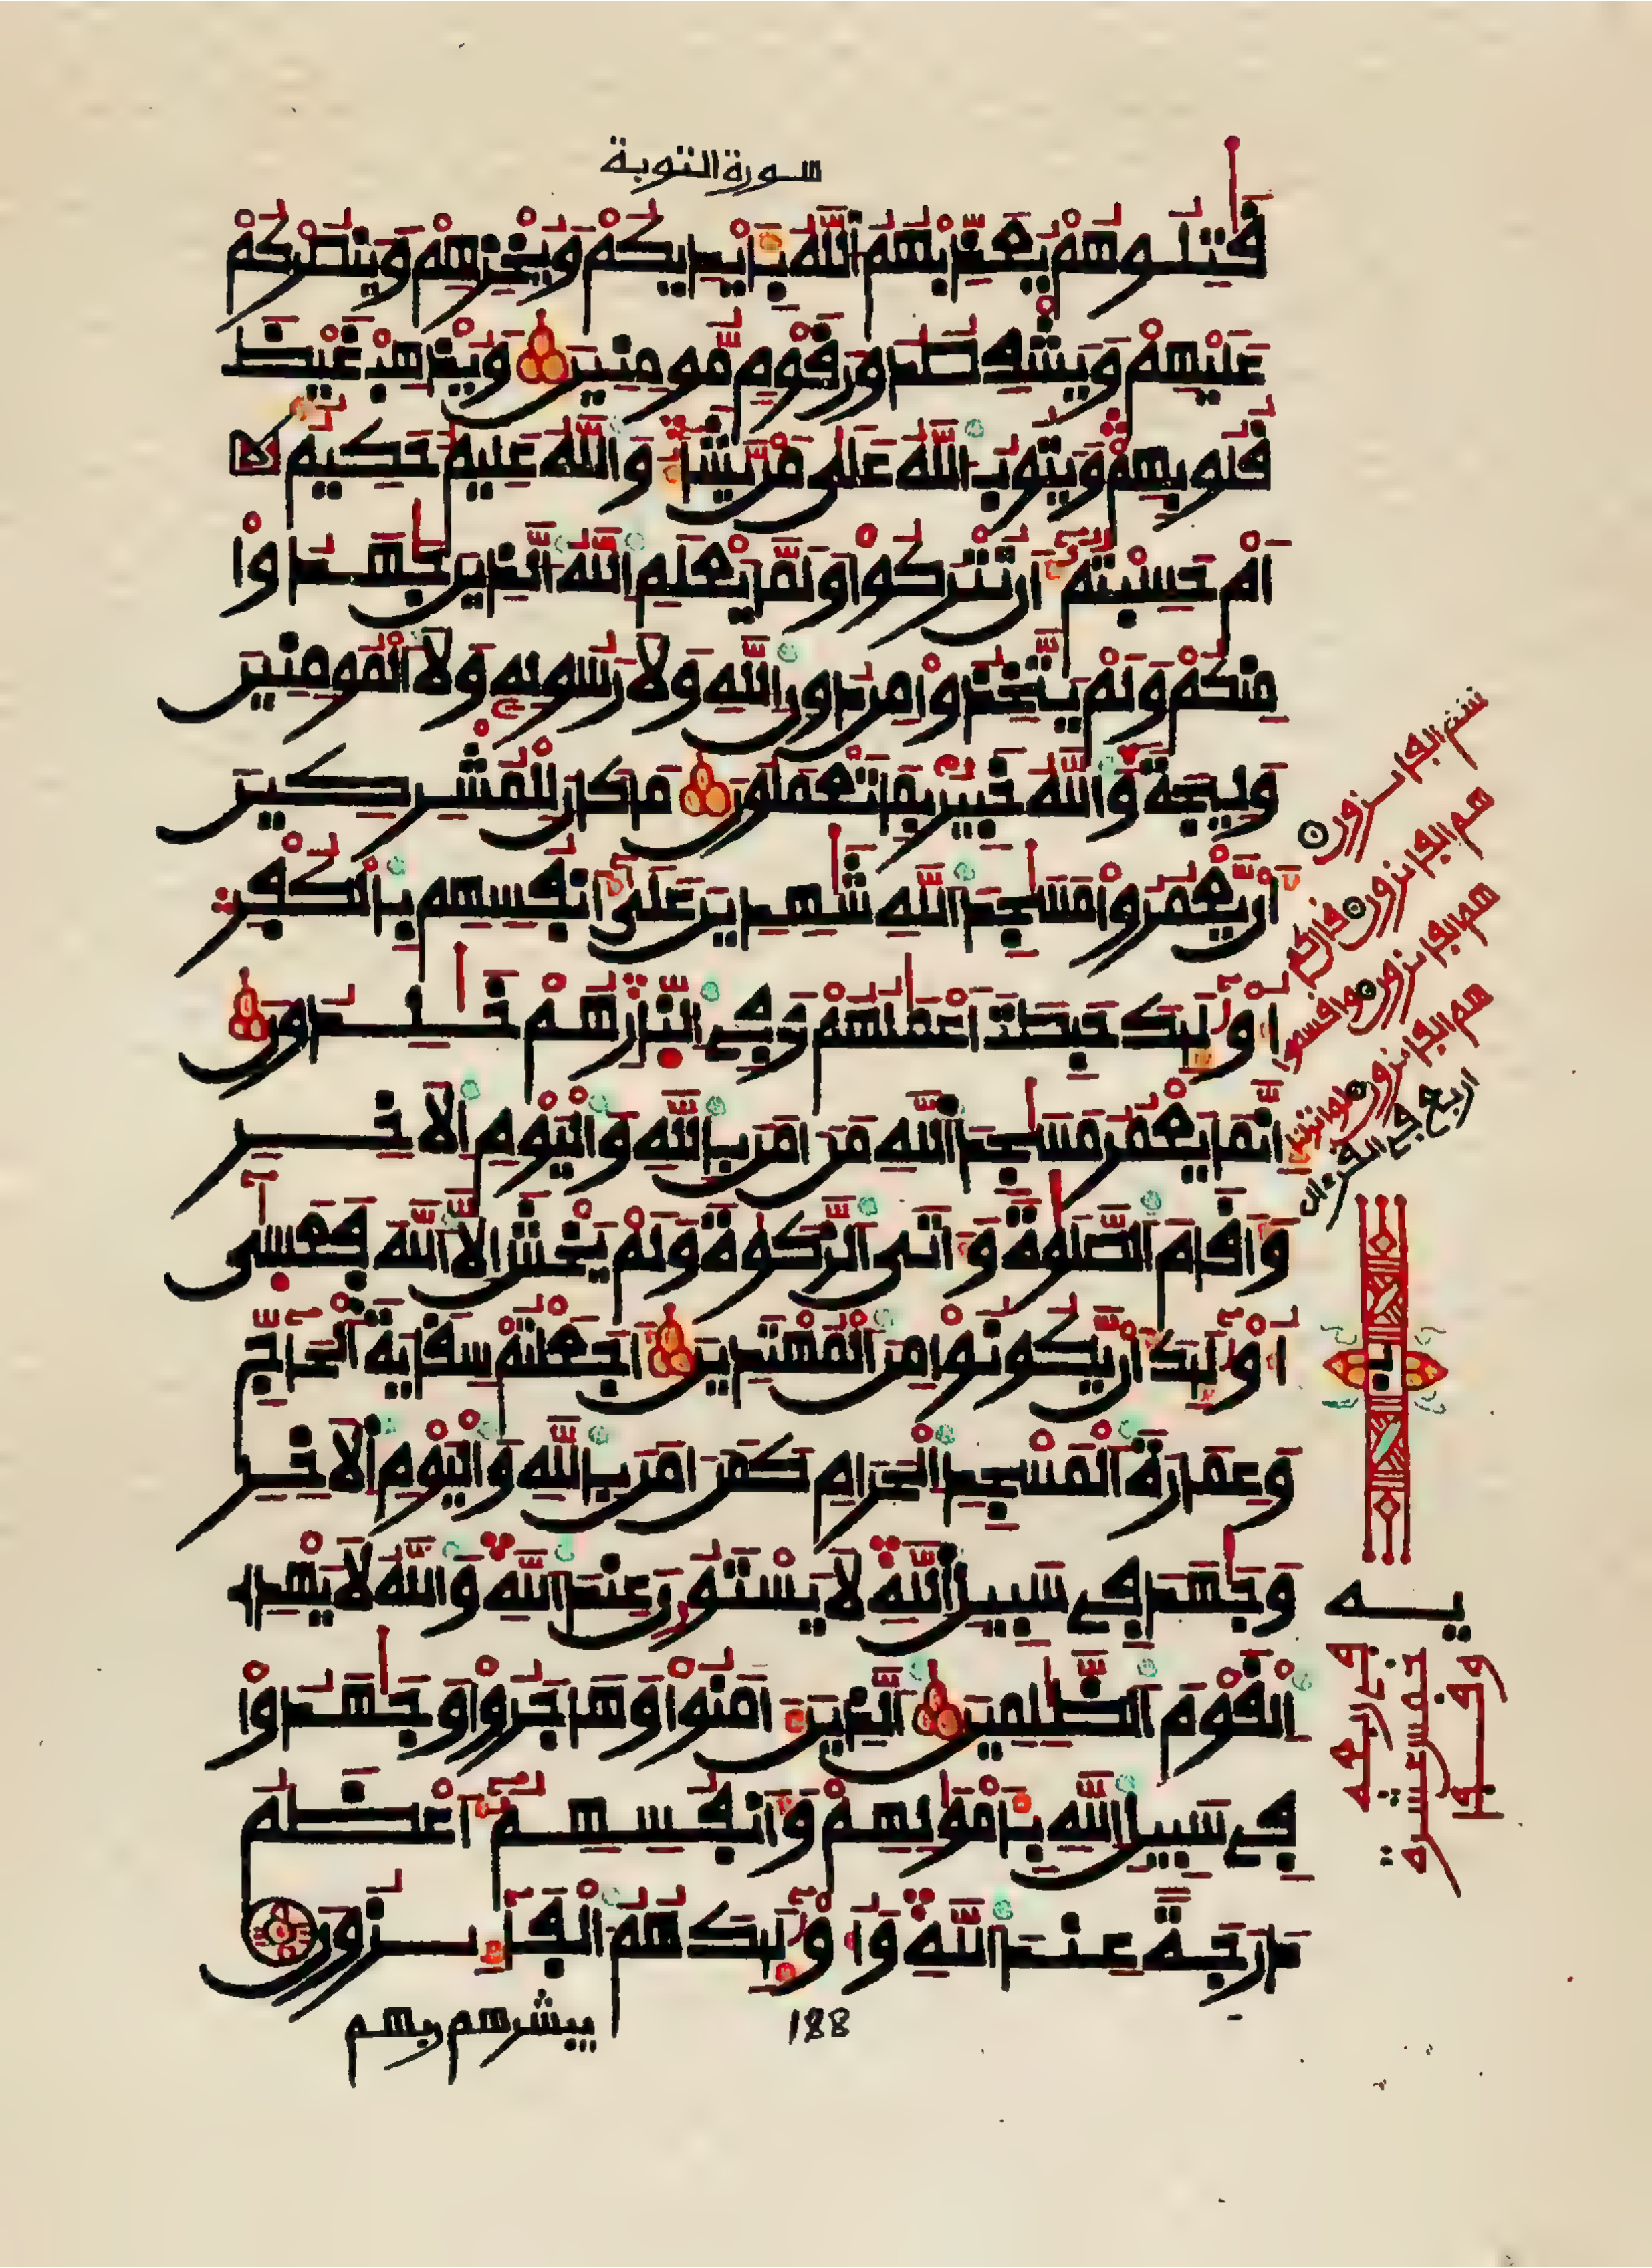 سورة التوبة
قتلوهم يعذبهم الله بايديكم ويخزهم وينصركم
عليهم ويشف صدور قوم مومنين ويذهب غيظ
قلوبهم ويتوب الله على من يشا والله عليم حكيم
ام حسبتم ان تتركوا ولما يعلم الله الذين جهدوا
منكم ولم يتخذوا من دون الله ولا رسوله ولا المومنين
وليجة والله خبير بما تعملون ما كان للمشركين
ان يعمروا مسجد الله شهدين على انفسهم بالكفر
اوليك حبطت اعملهم وفي النار هم خلدون
انما يعمر مسجد الله من امن بالله واليوم الاخر
واقام الصلوة واتى الزكوة ولم يخش الا الله فعسى
اوليك ان يكونوا من المهتدين اجعلتم سقاية الحاج
وعمارة المسجد الحرام كمن امن بالله واليوم الاخر
وجهد في سبيل الله لا يستون عند الله والله لا يهدي
القوم الظلمين الذين امنوا وهاجروا وجهدوا
في سبيل الله باموالهم وانفسهم اعظم
درجة عند الله واوليك هم الفايزون
يبشرهم ربهم
188
هم الفايزون
هم الفايزون
هم الفايزون وافسموا
هم الفايزون
اربع في القرءان